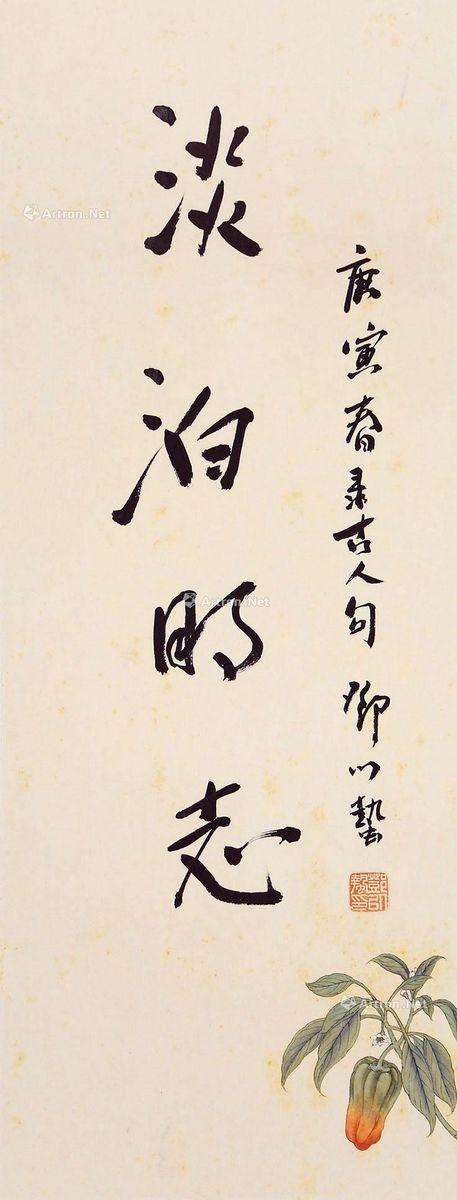 淡泊明志
庚寅春录古人句 鄧以蟄
Artron.Net
Artron.Net
Artron.Net